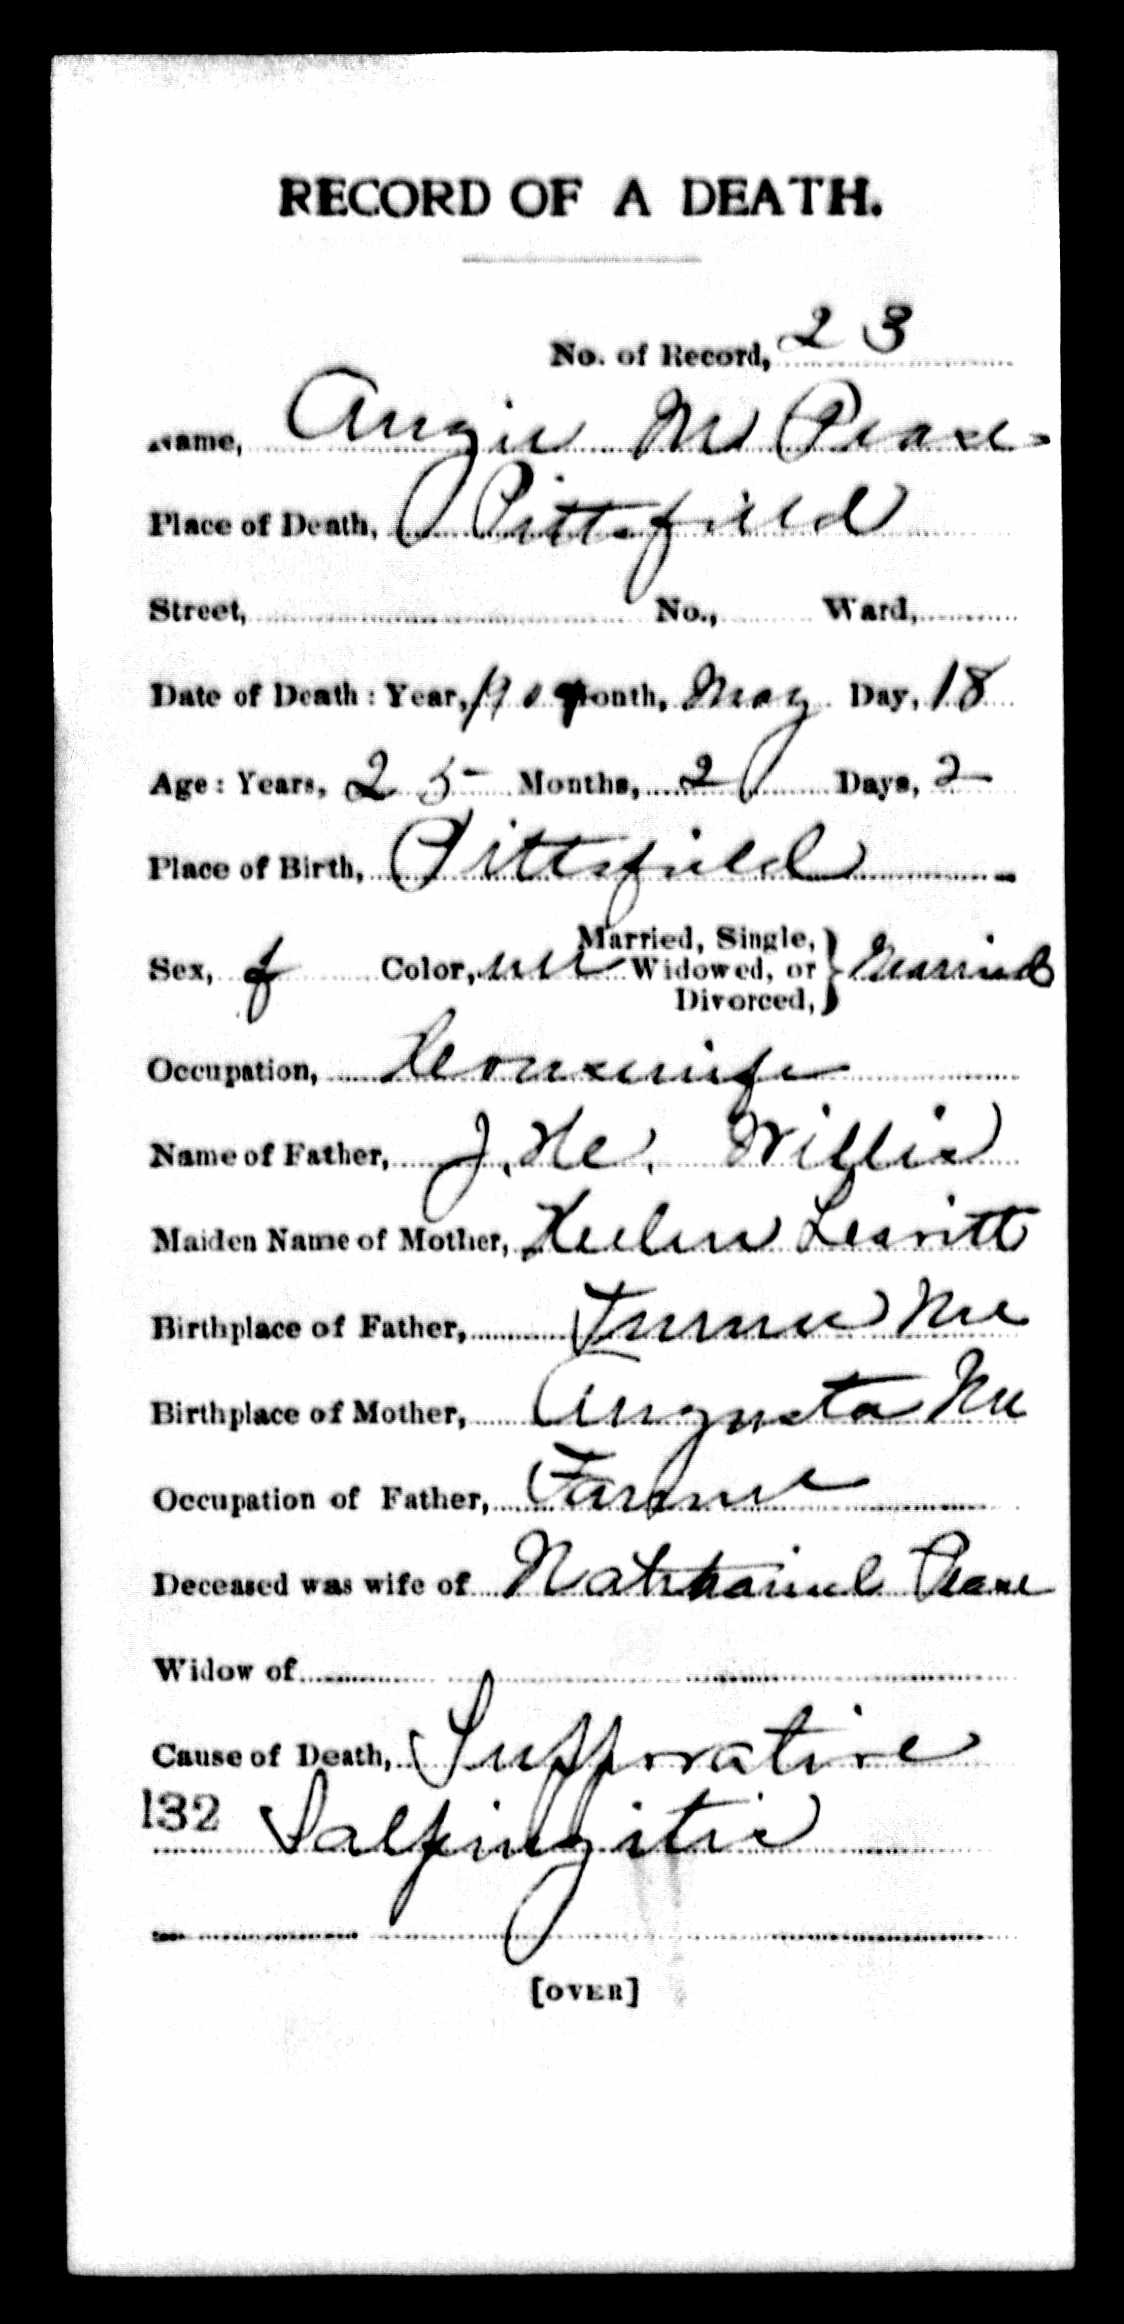 RECORD OF A DEATH.
No. of Record, 23
Name, Angie M Pease
Place of Death, Pittsfield
Street, No., Ward,
Date of Death: Year, 190 Month, May Day, 18
Age: Years, 25 Months, 2 Days, 2
Place of Birth, Pittsfield
Sex, f Color, W Married, Single, Widowed, or Divorced, } Married
Occupation, Housewife
Name of Father, J. H. Willis
Maiden Name of Mother, Hellen Leavitt
Birthplace of Father, Turner Me
Birthplace of Mother, Augusta Me
Occupation of Father, Farmer
Deceased was wife of Nathaniel Pease
Widow of
Cause of Death, Suppurative
132 Salpingitis
[OVER]